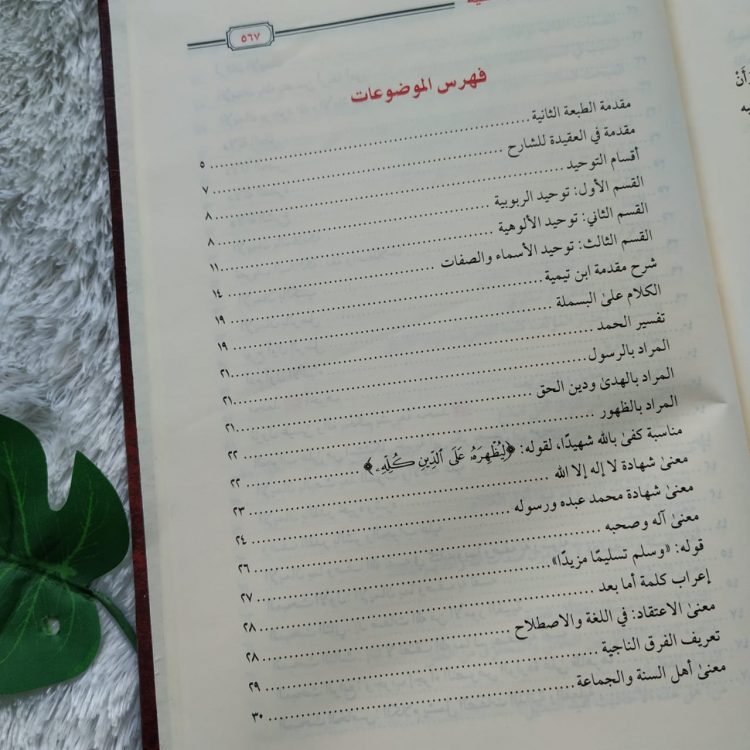 ٥٦٧
فهرس الموضوعات
مقدمة الطبعة الثانية ٥
مقدمة في العقيدة للشارح ٧
أقسام التوحيد ٨
القسم الأول: توحيد الربوبية ٨
القسم الثاني: توحيد الألوهية ١١
القسم الثالث: توحيد الأسماء والصفات ١٤
شرح مقدمة ابن تيمية ١٩
الكلام علىٰ البسملة ١٩
تفسير الحمد ٢١
المراد بالرسول ٢١
المراد بالهدىٰ ودين الحق ٢١
المراد بالظهور ٢٢
مناسبة كفىٰ بالله شهيدًا، لقوله: ﴿لِيُظْهِرَهُۥ عَلَى ٱلدِّينِ كُلِّهِۦ﴾ ٢٢
معنىٰ شهادة لا إله إلا الله ٢٣
معنىٰ شهادة محمد عبده ورسوله ٢٤
معنىٰ آله وصحبه ٢٦
قوله: «وسلم تسليمًا مزيدًا» ٢٧
إعراب كلمة أما بعد ٢٨
معنىٰ الاعتقاد: في اللغة والاصطلاح ٢٨
تعريف الفرق الناجية ٢٩
معنىٰ أهل السنة والجماعة ٣٠